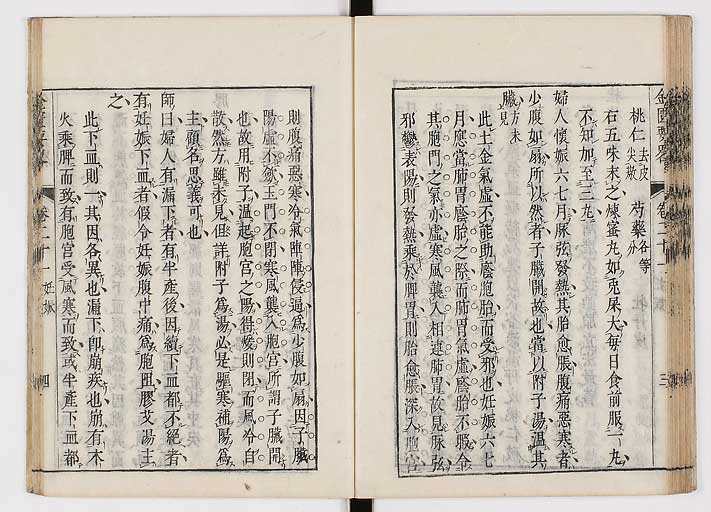 桃仁去皮尖熬 芍藥各等分
右五味末之煉蜜丸如兎屎大每日食前服一丸
不知加至三丸
婦人懷娠六七月脉弦發熱其胎愈脹腹痛惡寒者
少腹如扇所以然者子臟開故也當以附子湯溫其
臟方未見
此土金氣虛不能助麐胞胎而受邪也妊娠六七
月應當肺胃麐胎之際而肺胃氣虛麐胎不服令
其胞門之氣亦虛寒風襲入相連肺胃故見脉弦
邪鬱表陽則發熱乘於脾胃則胎愈脹深入胞宮
金匱要畧 卷二十一 三
則腹痛惡寒冷氣陣陣侵逼爲少腹如扇因子臟
陽虛不斂玉門不閉寒風襲入胞宮所謂子臟開
也故用附子溫起胞宮之陽得煖則閉而風冷自
散然方雖未見但詳附子爲湯必是驅寒補陽爲
主顧名思義可也
師曰婦人有漏下者有半產後因續下血都不絕者
有妊娠下血者假令妊娠腹中痛爲胞阻膠艾湯主
之
此下血則一其因各異也漏下卽崩疾也崩有木
火乘脾而致有胞宮受風寒而致或半產下血都
金匱要畧 卷二十一 妊娠 四